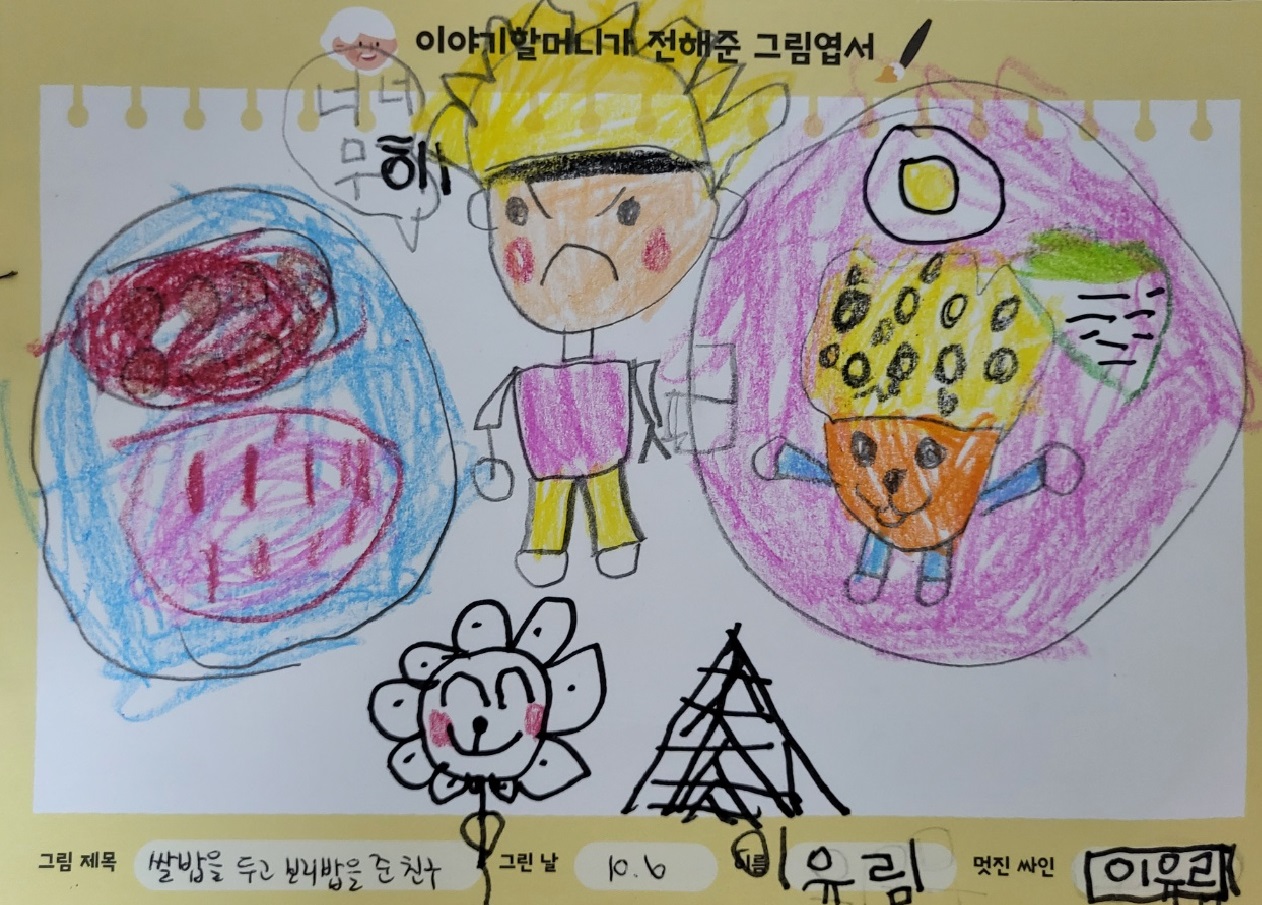 이야기할머니가 전해준 그림엽서
너 너
무해
그림 제목 쌀밥을 두고 보리밥을 준 친구 그린 날 10.9 이름 이유림 멋진 싸인 이유림